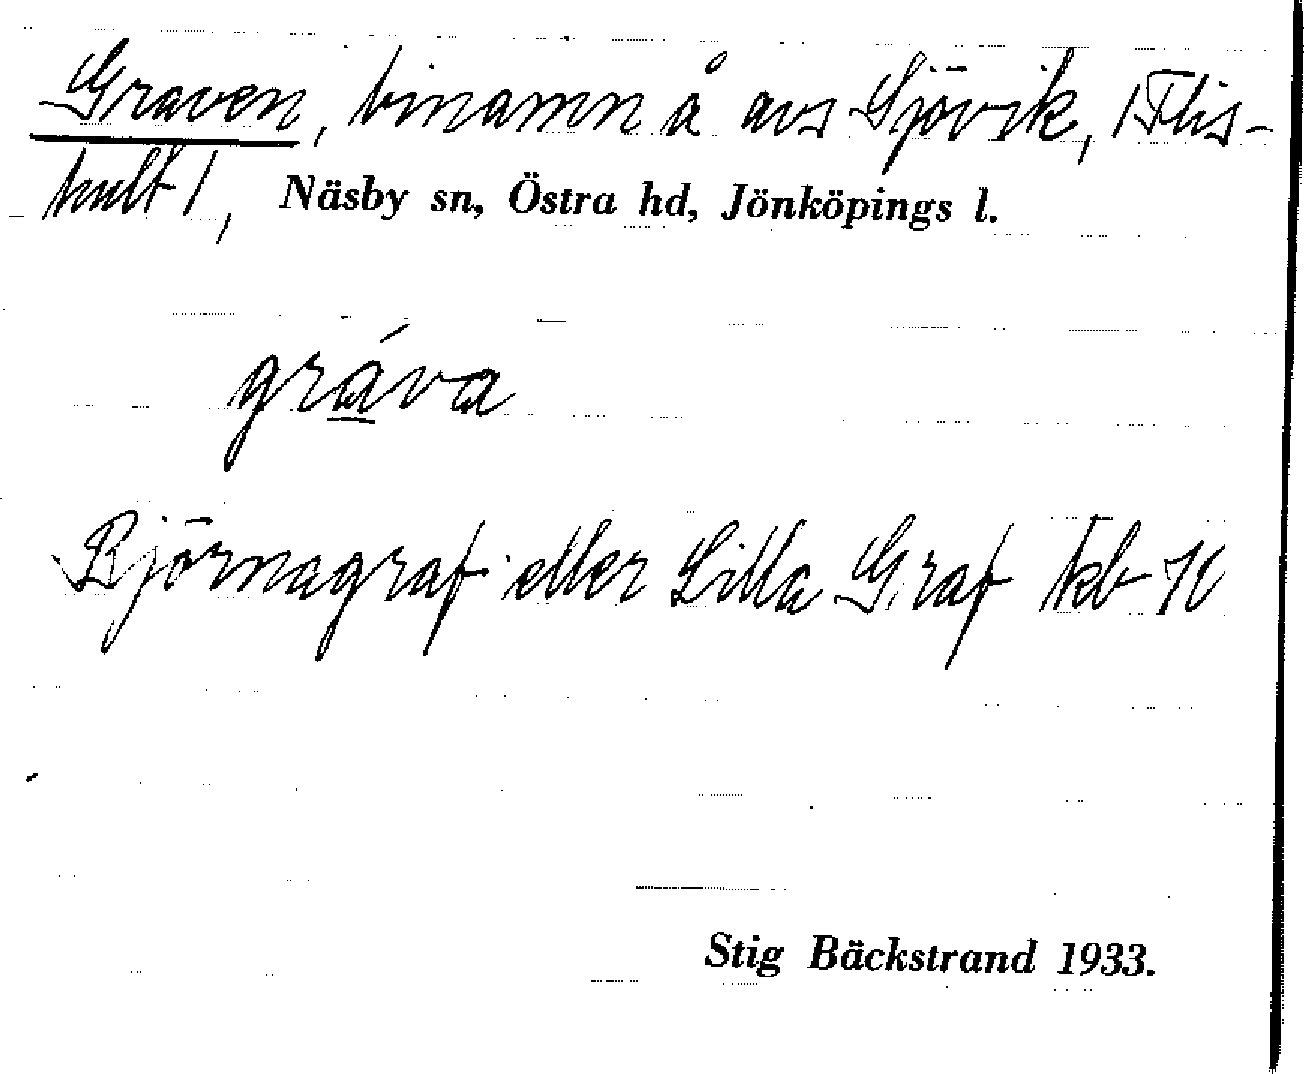 Graven, binamn å avs Sjövik, /Flis-
hult/, Näsby sn, Östra hd, Jönköpings l.
gráva
Björnagraf eller Lilla Graf kb
Stig Bäckstrand 1933.